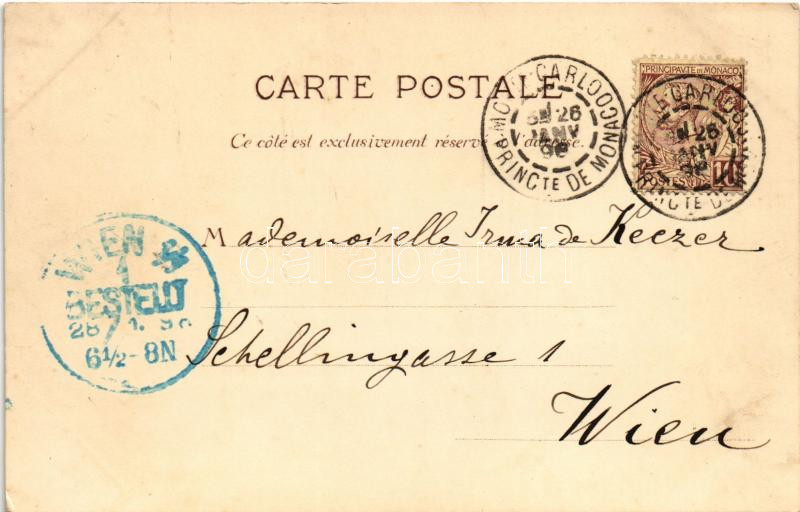 CARTE POSTALE
Ce côté est exclusivement réservé à l'adresse.
MONTE-CARLO
26
JANV
98
PRINCTE DE MONACO
PRINCIPAUTE DE MONACO
26
JANV
Mademoiselle Irma de Keczer
Schellingasse 1
Wien
WIEN
1
BESTELLT
28 1. 98
6½-8N
darabanth